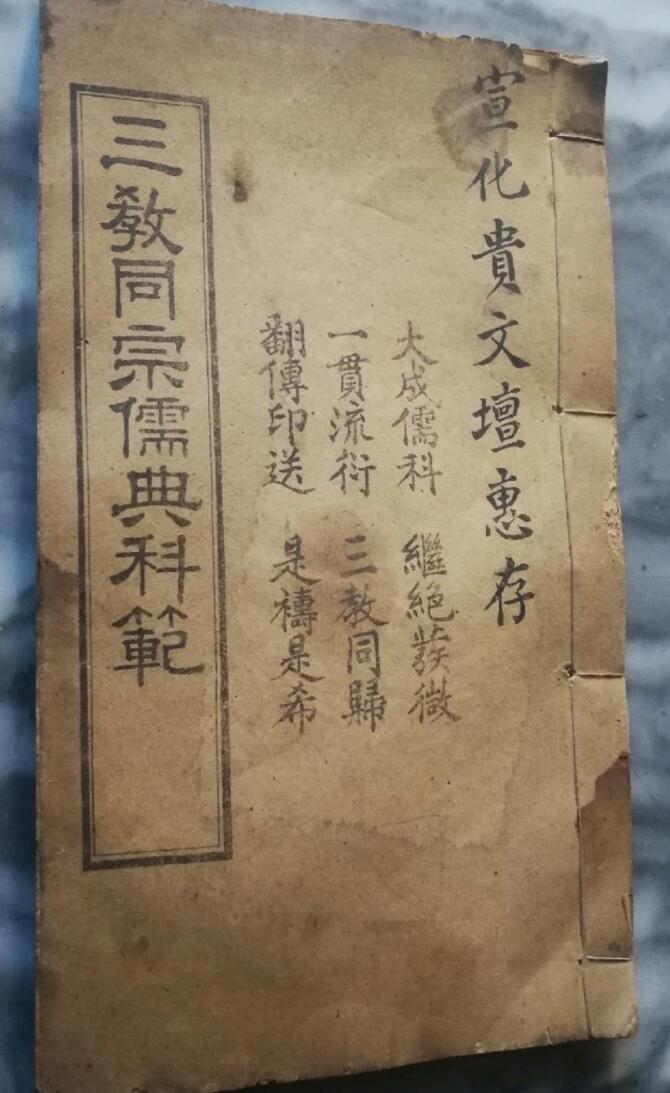 宣化貴文壇惠存
大成儒科 繼絶蕟微
一貫流衍 三教同歸
翻傳印送 是禱是希
三教同宗儒典科範